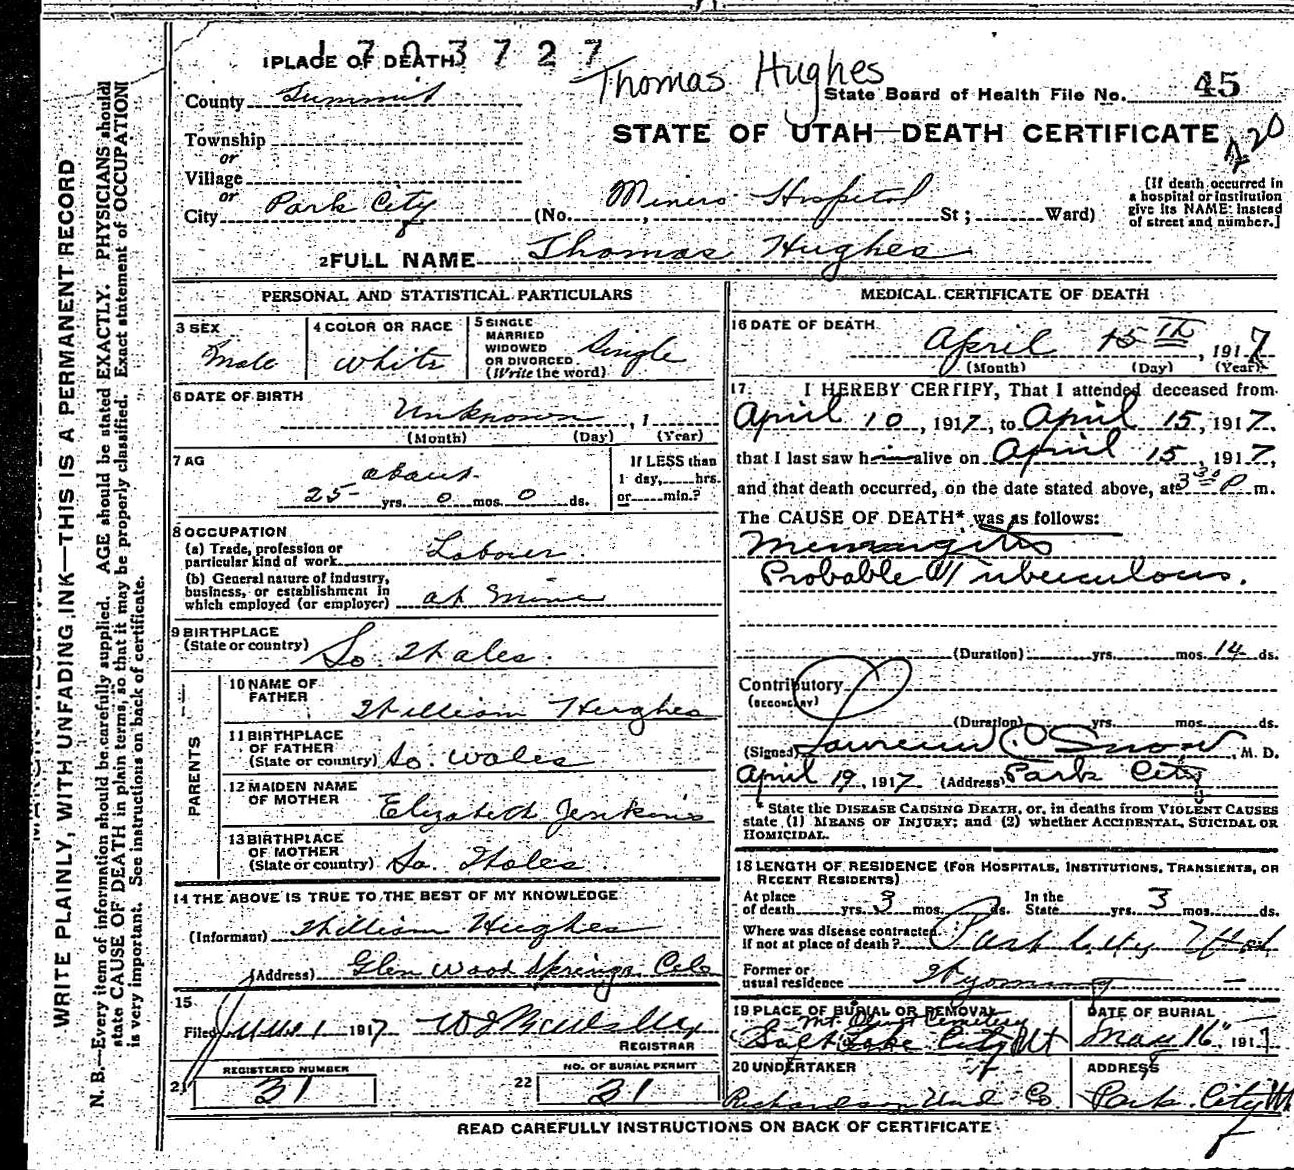 1703727
1 PLACE OF DEATH
Thomas Hughes
County Summit
State Board of Health File No. 45
Township
or
STATE OF UTAH—DEATH CERTIFICATE
Village
or
City Park City (No. Miners Hospital St; Ward)
[If death occurred in
a hospital or institution
give its NAME instead
of street and number.]
2 FULL NAME Thomas Hughes
PERSONAL AND STATISTICAL PARTICULARS
3 SEX
Male
4 COLOR OR RACE
White
5 SINGLE
MARRIED
WIDOWED
OR DIVORCED
(Write the word)
Single
6 DATE OF BIRTH
Unknown, 1
(Month) (Day) (Year)
7 AG
about
25 yrs. 0 mos. 0 ds.
If LESS than
1 day, hrs.
or min.?
8 OCCUPATION
(a) Trade, profession or
particular kind of work Labouer
(b) General nature of industry,
business, or establishment in
which employed (or employer) at Mine
9 BIRTHPLACE
(State or country) So. Wales
PARENTS
10 NAME OF
FATHER
William Hughes
11 BIRTHPLACE
OF FATHER
(State or country) So. Wales
12 MAIDEN NAME
OF MOTHER
Elizabeth Jenkins
13 BIRTHPLACE
OF MOTHER
(State or country) So. Wales
14 THE ABOVE IS TRUE TO THE BEST OF MY KNOWLEDGE
(Informant) William Hughes
(Address) Glen Wood Springs Colo
15
Filed 1 1917
REGISTRAR
REGISTERED NUMBER
21 31
NO. OF BURIAL PERMIT
22 31
MEDICAL CERTIFICATE OF DEATH
16 DATE OF DEATH
April 15th, 1917
(Month) (Day) (Year)
17 I HEREBY CERTIFY, That I attended deceased from
April 10, 1917, to April 15, 1917.
that I last saw him alive on April 15, 1917,
and that death occurred, on the date stated above, at 3 30 P m.
The CAUSE OF DEATH* was as follows:
Meningitis
Probable Tuberculous.
(Duration) yrs. mos. 14 ds.
Contributory
(SECONDARY)
(Duration) yrs. mos. ds.
(Signed) Snow, M. D.
April 19, 1917 (Address) Park City
* State the DISEASE CAUSING DEATH, or, in deaths from VIOLENT CAUSES
state (1) MEANS OF INJURY; and (2) whether ACCIDENTAL, SUICIDAL OR
HOMICIDAL.
18 LENGTH OF RESIDENCE (FOR HOSPITALS, INSTITUTIONS, TRANSIENTS, OR
RECENT RESIDENTS)
At place
of death yrs. 3 mos. ds.
In the
State yrs. 3 mos. ds.
Where was disease contracted,
if not at place of death? Park City Utah
Former or
usual residence Wyoming
19 PLACE OF BURIAL OR REMOVAL
Mt. Olivet Cemetery
Salt Lake City Ut
DATE OF BURIAL
May 16" 1917
20 UNDERTAKER
Richardson Und Co
ADDRESS
Park City Ut
READ CAREFULLY INSTRUCTIONS ON BACK OF CERTIFICATE
WRITE PLAINLY, WITH UNFADING INK—THIS IS A PERMANENT RECORD
N. B.—Every item of information should be carefully supplied. AGE should be stated EXACTLY. PHYSICIANS should
state CAUSE OF DEATH in plain terms, so that it may be properly classified. Exact statement of OCCUPATION
is very important. See instructions on back of certificate.